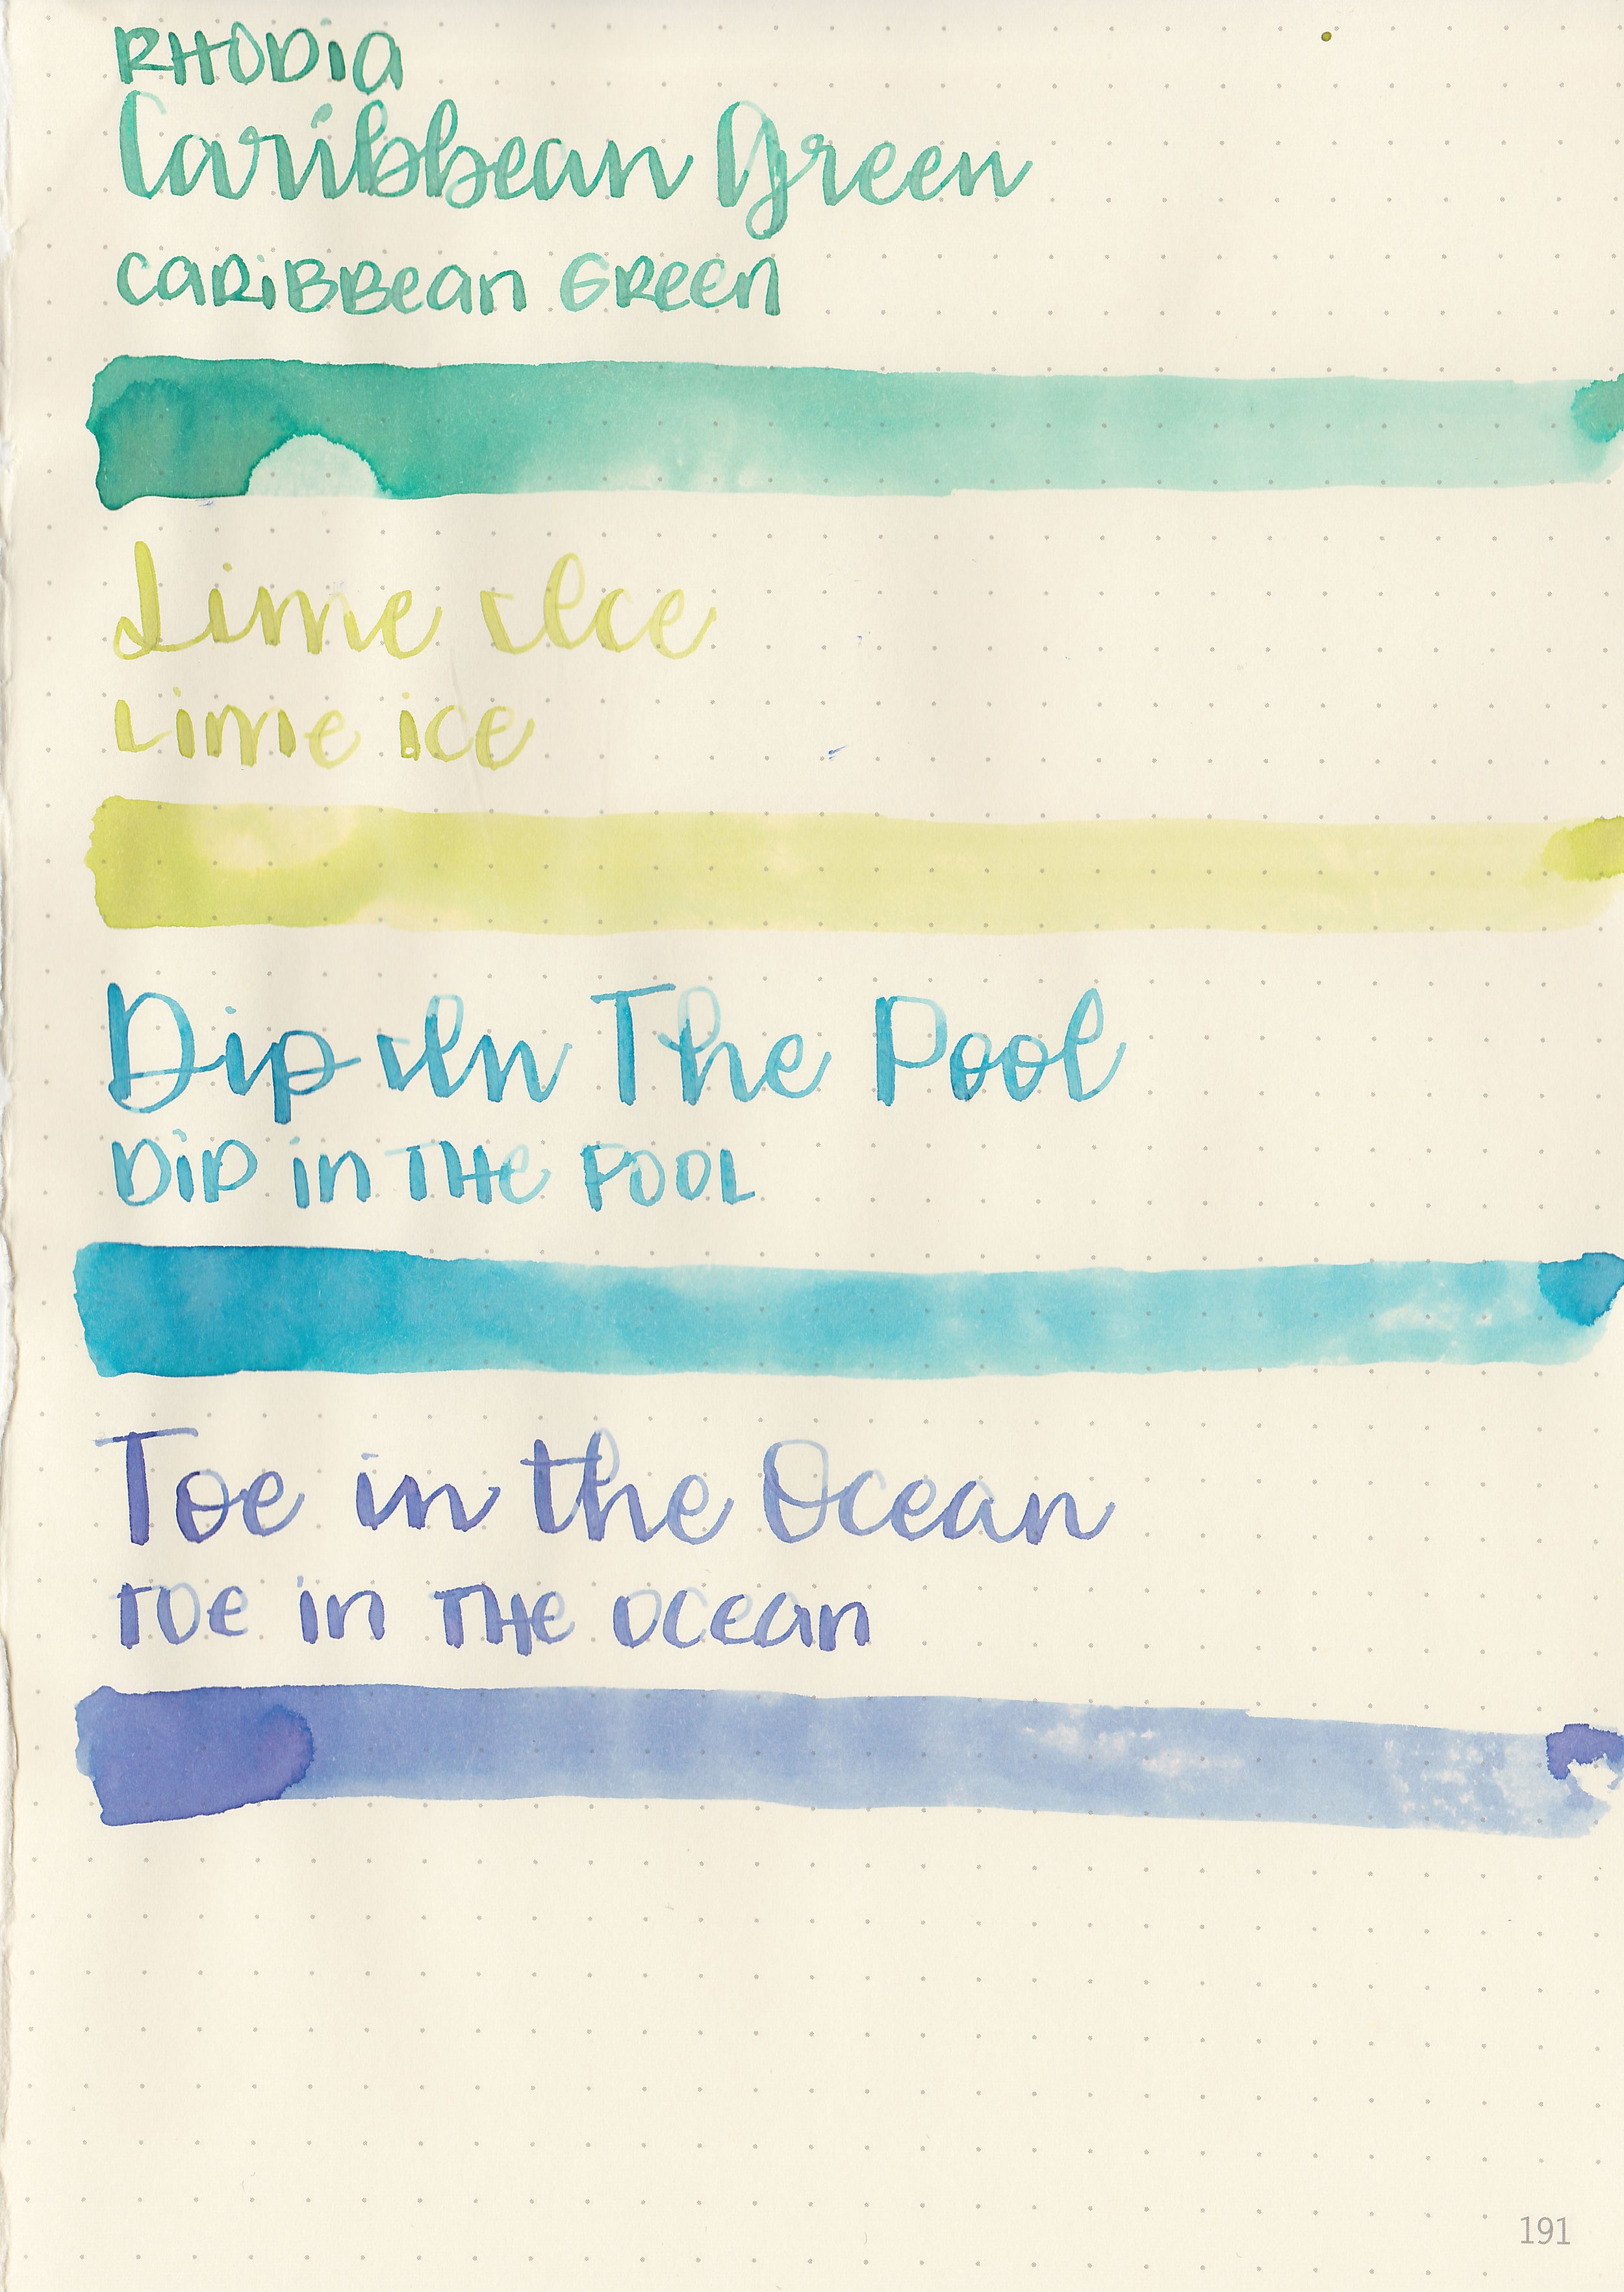 RHODIA
Caribbean Green
CARIBBean GReen
Lime Ice
Lime ice
Dip In The Pool
DiP in THe POOL
Toe in the Ocean
TOe in THe Ocean
191